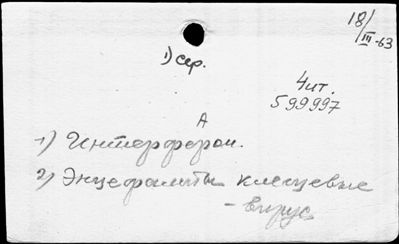 18/III-63
1) сер.
4 ит.
599997
А
1) Интерферон.
2) Энцефалиты клещевые
- вирус